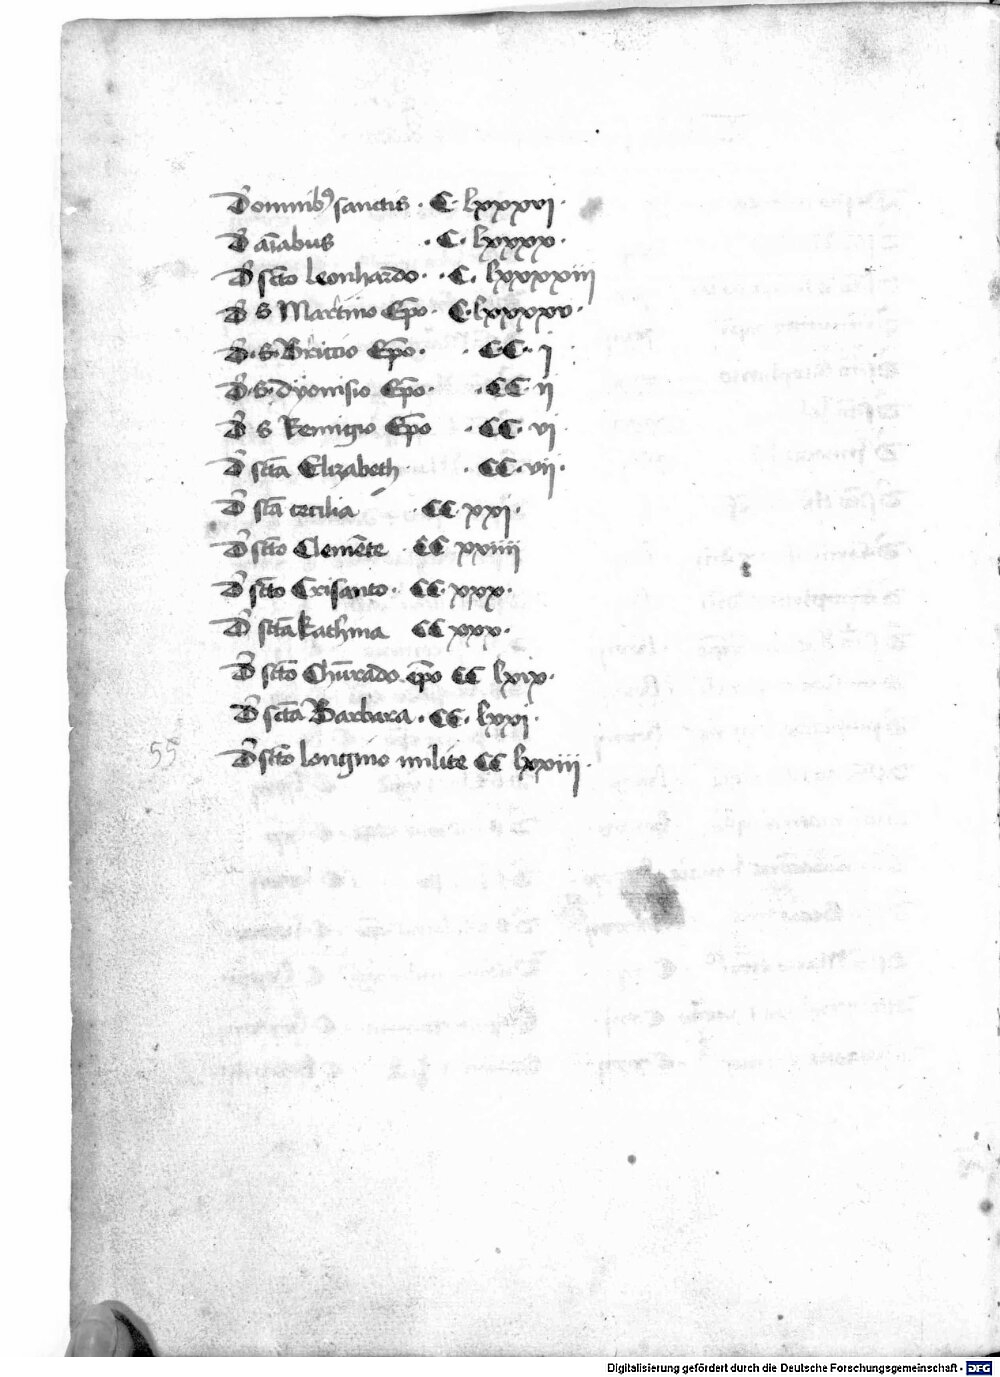 De omnibꝫ sanctis · C · lxxxvi ·
De aī̄abus · C · lxxxx ·
De scto leonhardo · · C · lxxxxiii
De S Martino Ep̄o · C · lxxxxv ·
De · S · Briccio Ep̄o · · CC · i
De · S · dyonisio Ep̄o · · CC · ii
De S Remigio Ep̄o · CC · vi
De sctā Elizabeth · CC · vii ·
De stā cecilia · CC xxi ·
De scto Clemēte · CC xxiiii
De scto Crisanto · CC · xxx ·
De sctā kath'ina CC xxx ·
De scto Chūrado ep̄o CC lxix ·
De sctā Barbara · CC · lxxi ·
55
De scto longino milite CC lxxiiii ·
Digitalisierung gefördert durch die Deutsche Forschungsgemeinschaft - DFG